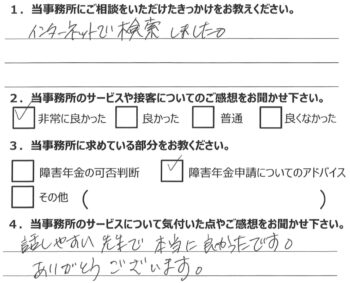 1．当事務所にご相談をいただけたきっかけをお教えください。
インターネットで検索しました。
2．当事務所のサービスや接客についてのご感想をお聞かせ下さい。
☑非常に良かった □良かった □普通 □良くなかった
3．当事務所に求めている部分をお教ください。
□障害年金の可否判断 ☑障害年金申請についてのアドバイス
□その他（ ）
4．当事務所のサービスについて気付いた点やご感想をお聞かせ下さい。
話しやすい先生で本当に良かったです。
ありがとうございます。